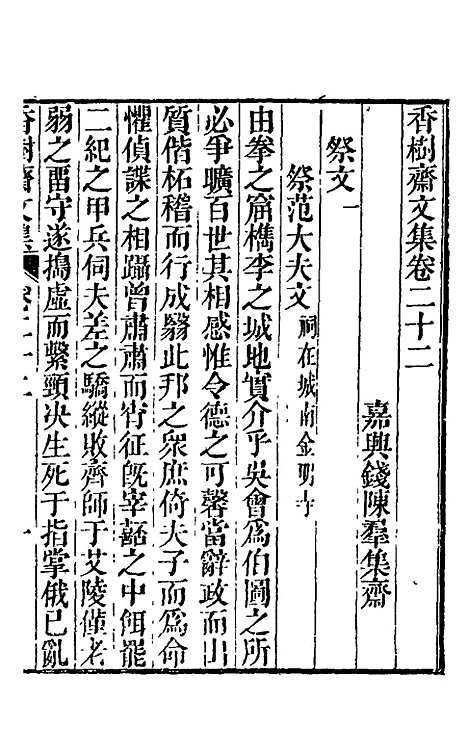 香樹齋文集卷二十二
嘉興錢陳羣集齋
祭文一
祭范大夫文 祠在城南金明寺
由拳之窟檇李之城地實介乎吳會爲伯圖之所
必爭曠百世其相感惟令德之可馨當辭政而出
質偕柘稽而行成嫋此邦之衆庶倚夫子而爲命
懼偵諜之相躡曾肅肅而宵征旣宰嚭之中餌罷
二紀之甲兵伺夫差之驕縱敗齊師于艾陵僅老
弱之畱守遂搗虛而繫頸决生死于指掌俄已亂
香樹齋文集 卷二十二 一